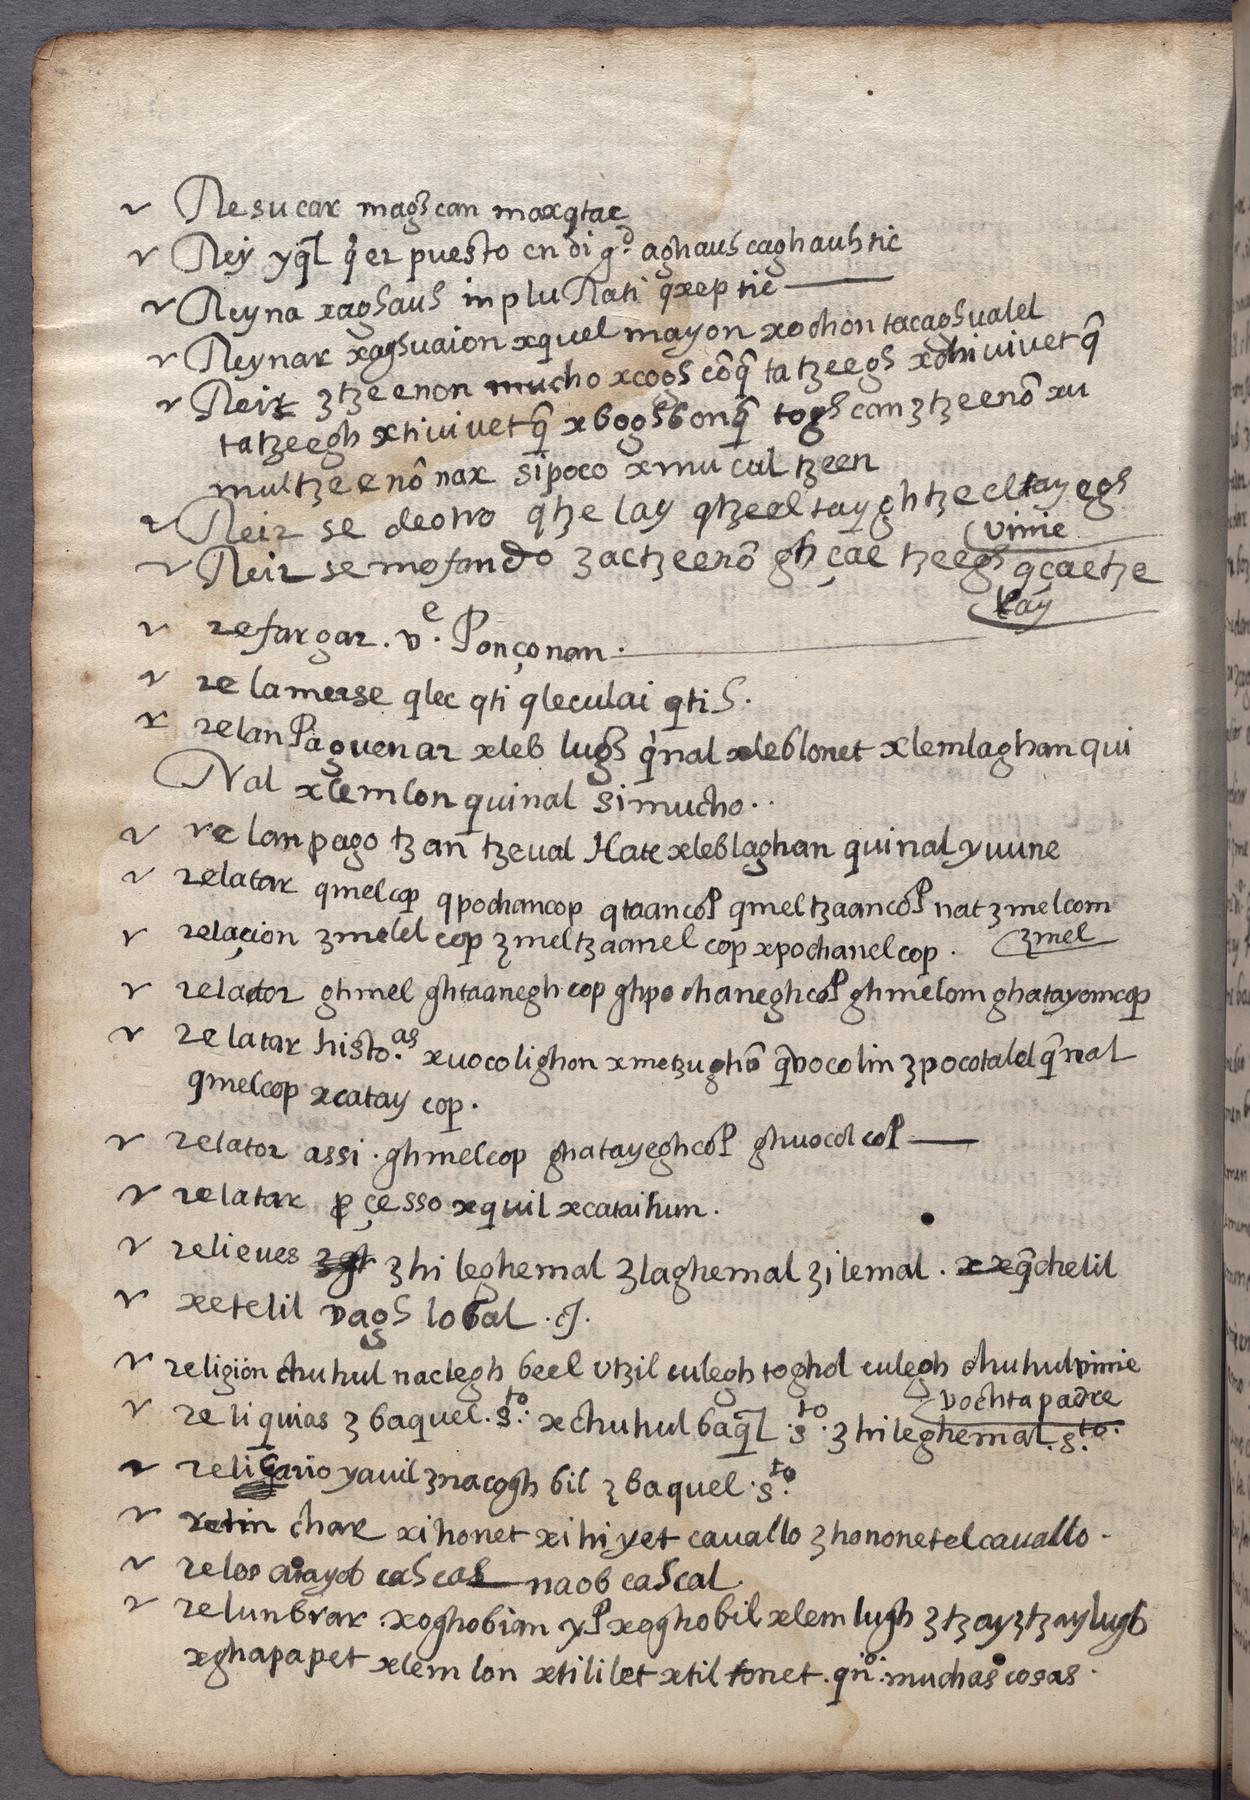 Resucar maghcan maxqtac
Rey yql̃ q̃ er puesto en di gᵈ. aghauh caghauhtic
Reyna xaghauh in plu Rati qxeptic
Reynar xaghuaion xquel mayon xochon tacaghualel
Reir ztzeenon mucho xcogh cõq̃ ta tzeegh xchivivet q̃
tatzeegh xtivivet q̃ xboghbonq̃ togh can ztzeenõ xu
multzeenõ nax si poco xmucul tzeen
Reir se deotro qtzelay qtzeeltay ghtzeeltayegh
vinie
Reir se mofando zactzeenõ gh çae tzeegh qçaetze
tay
refargar. vᵉ. Ponçonar.
relamerse qlec qti qleculai qtih.
relanpaguenar xleb lugh q̃nal xleblonet xlemlaghan qui
Nal xlemlon quinal si mucho..
relanpago tzan tzeual Hate xleblaghan quinal yuune
relatar qmelcop qpochancop qtaancop qmeltzaancop nat zmelcom
relaçion zmelel cop zmeltzaanel cop xpochanelcop. zmel
relactor ghmel ghtaanegh cop ghpochaneghcop ghmelom ghatayomcop
relatar histo.ᵃˢ xuocolighon xmetzughõ q̃vocolin zpocotalel q̃nal
qmelcop xcatay cop.
relator assi. ghmelcop ghatayeghcop ghuocol cop
relatar p çesso xquil xcataihun.
relieues zhi leghemal zlaghemal zilemal. xq̃chelil
xetelil vagh lobal .cJ.
religion chuhul naclegh beel vtzil culegh toghol culegh chuhulvinie
vochta padre
reliquias z baquel. sᵗᵒ. xchuhul baq̃l .sᵗᵒ. zhileghemal. sᵗᵒ.
religario yauil znacogh bil z baquel .sᵗᵒ.
retin char xihonet xihiyet cauallo zhononetelcauallo.
relos atayob cahcah naob cahcal.
relunbrar xoghobian yp xoghobil xlem lugh ztzayztzaylugh
xghapapet xlem lon xtililet xtil tonet. qñ.ᵒ: muchas cosas.